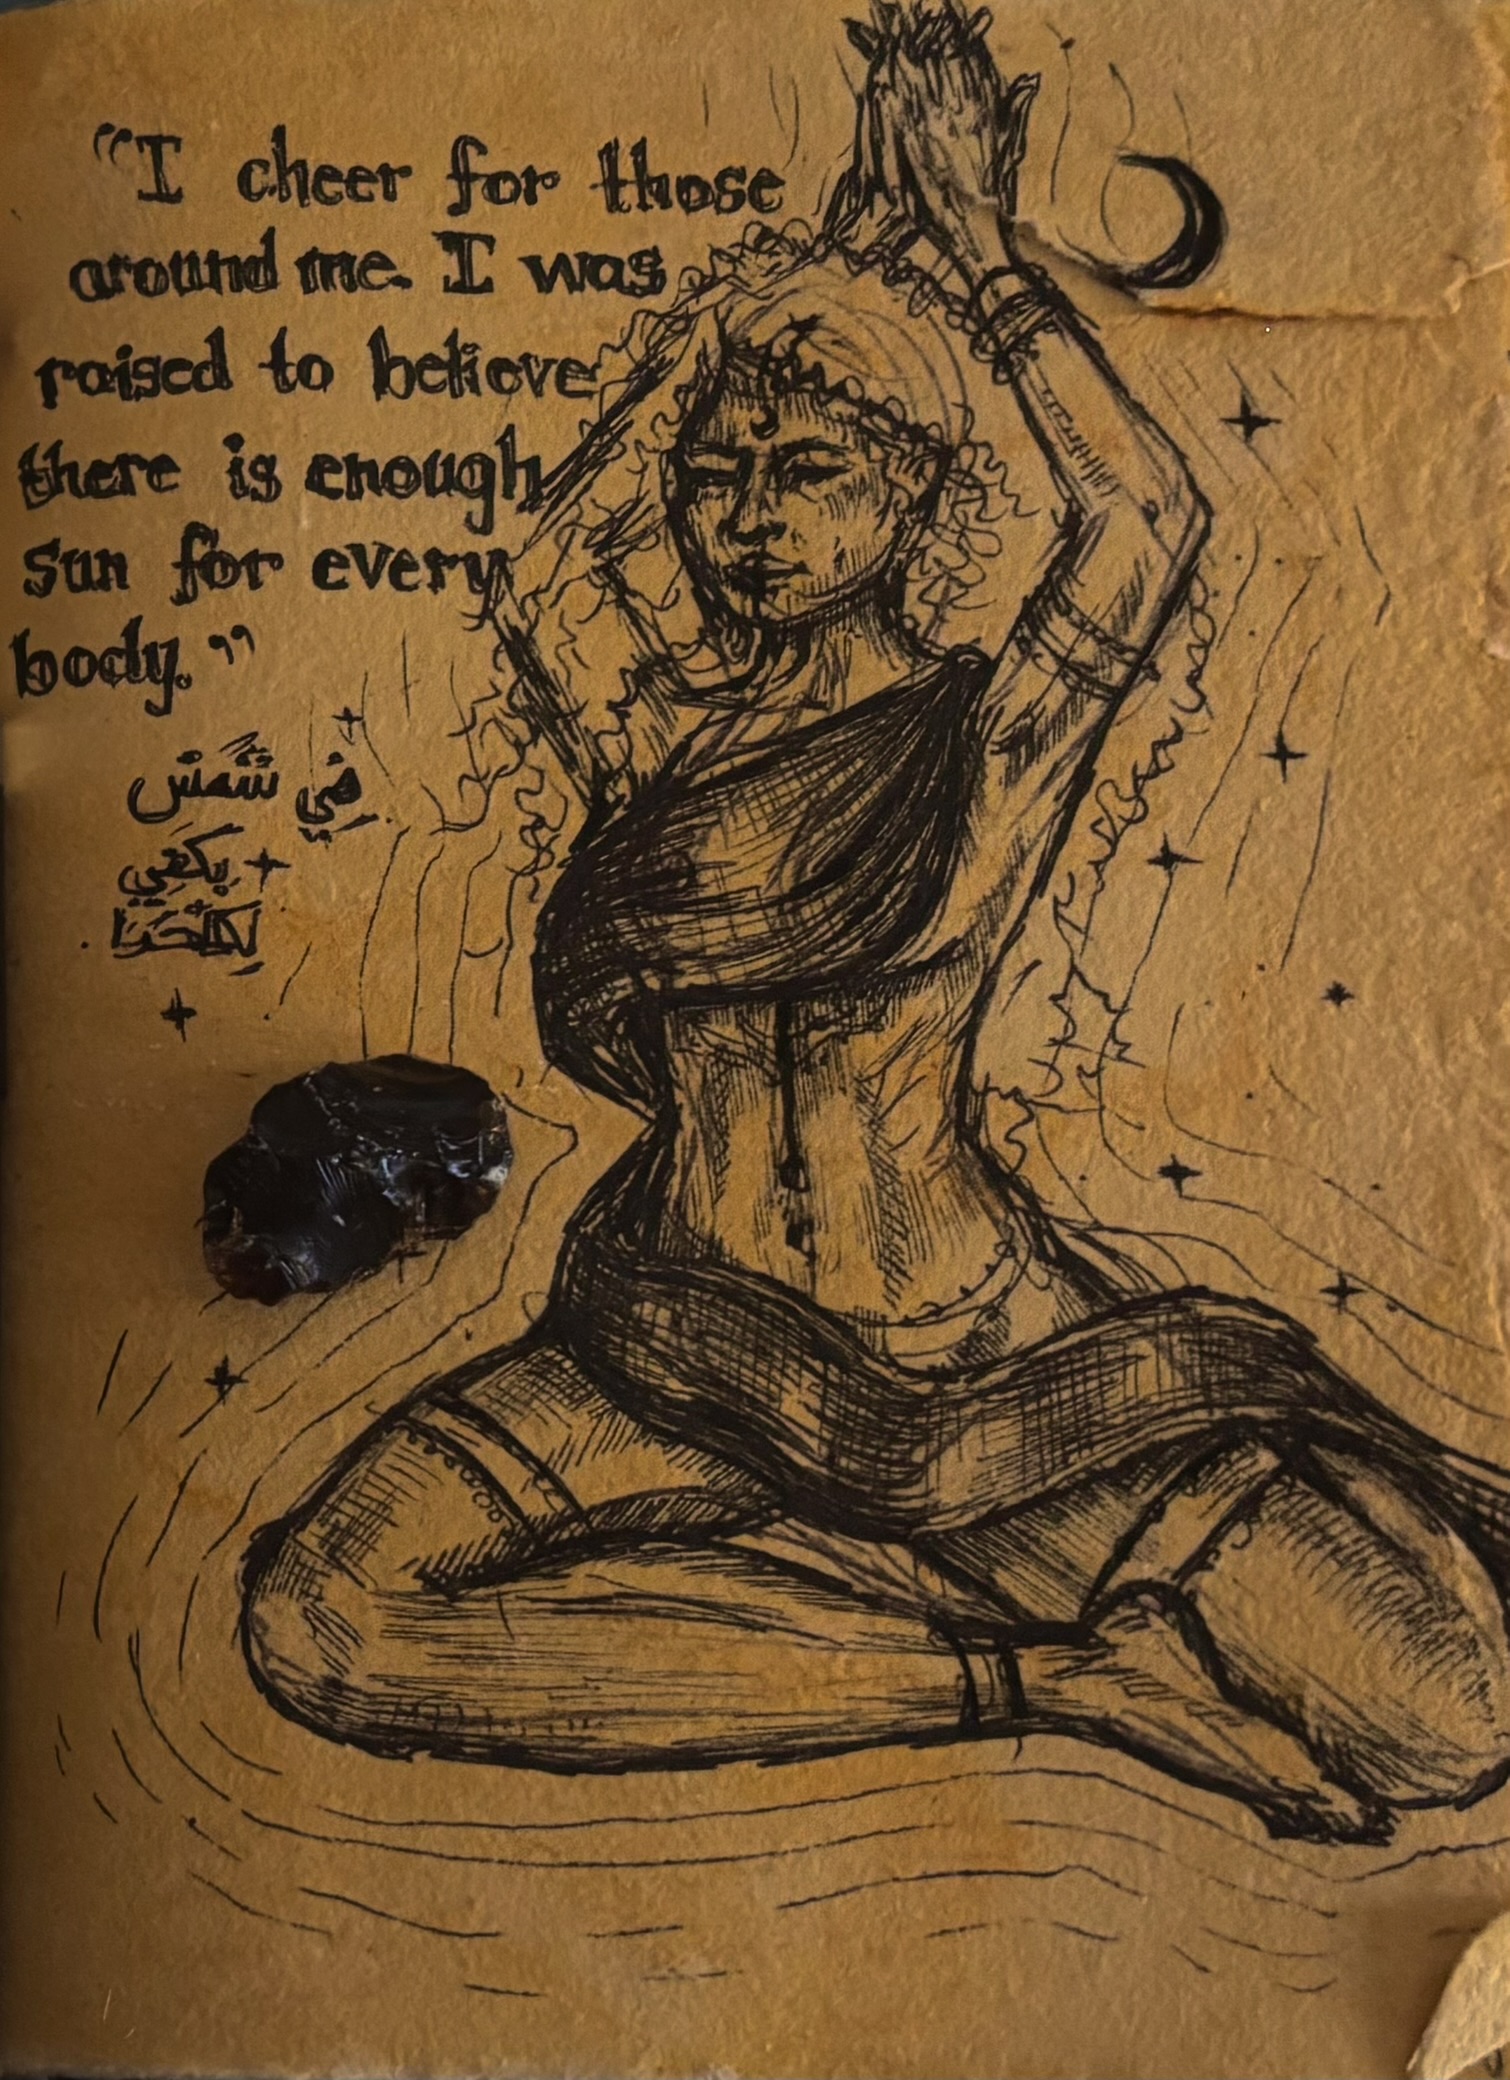 “I cheer for those
around me. I was
raised to believe
there is enough
sun for every
body.”
في شمس
بكفي